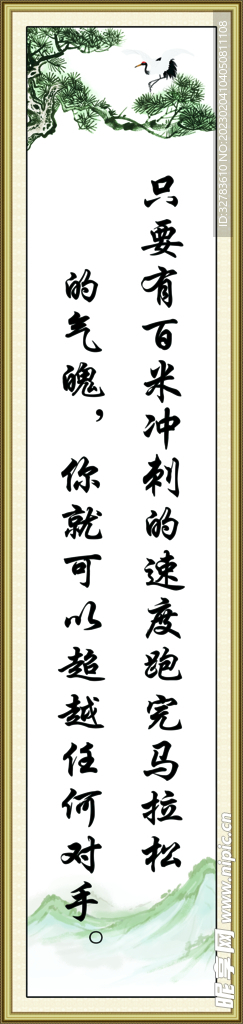 只要有百米冲刺的速度跑完马拉松
的气魄，你就可以超越任何对手。
ID:32783610 NO:20230204104050811108
昵享网 www.nipic.cn